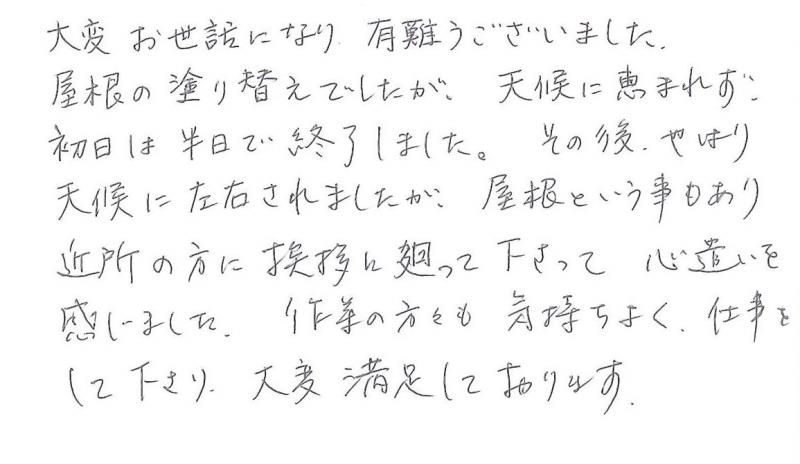 大変 お世話になり、有難うございました。
屋根の塗り替えでしたが、天候に恵まれず、
初日は半日で終了しました。その後、やはり
天候に左右されましたが、屋根という事もあり
近所の方に挨拶に廻って下さって 心遣いを
感じました。作業の方々も 気持ちよく、仕事を
して下さり、大変満足しております。